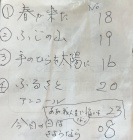 ① 春が来た No 18
② ふじの山 19
③ 手のひらを太陽に 16
④ ふるさと 20
アンコール
23
今日の日は 08
さようなら